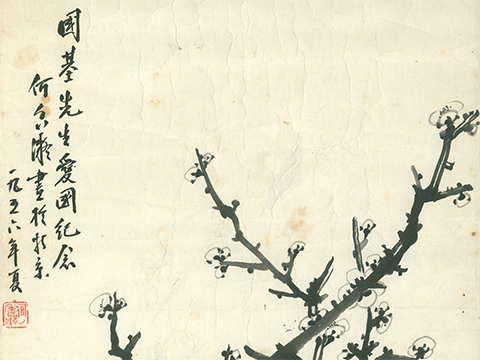 國基先生愛國紀念
何香凝畫於北京
一九五六年夏